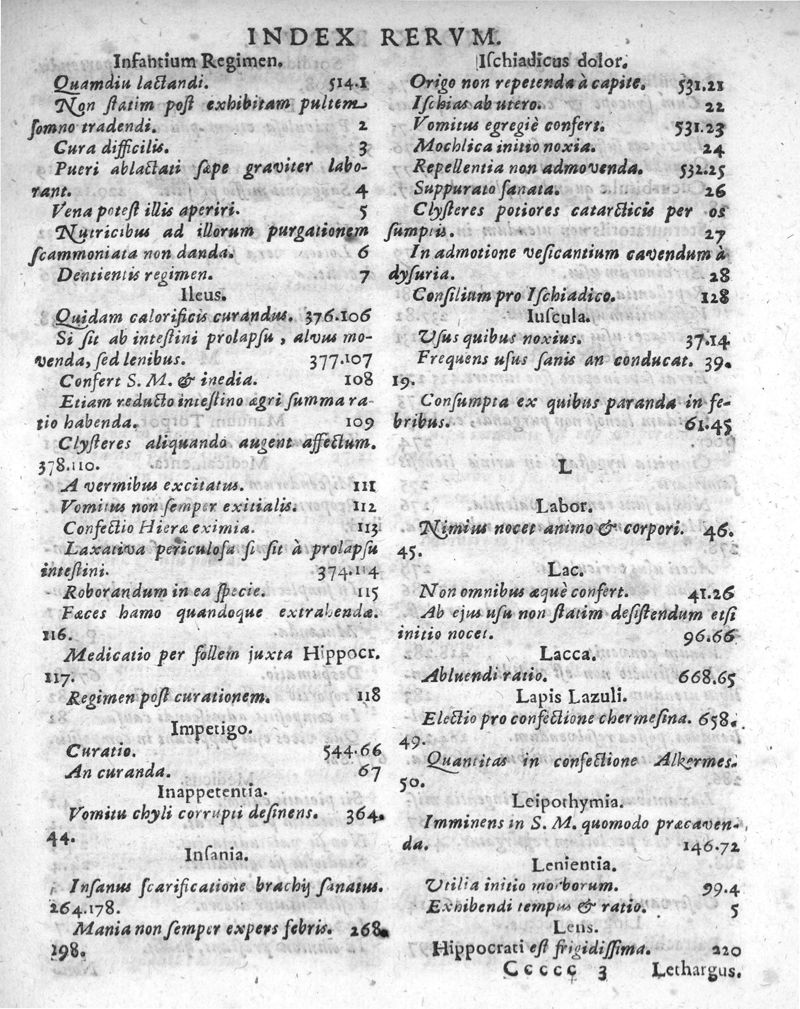 INDEX RERVM.
Infantium Regimen.
Quamdiu lactandi. 514.1
Non ſtatim poſt exhibitam pultem
ſomno tradendi. 2
Cura difficilis. 3
Pueri ablactati ſæpe graviter labo-
rant. 4
Vena poteſt illis aperiri. 5
Nutricibus ad illorum purgationem
ſcammoniata non danda. 6
Dentientis regimen. 7
Ileus.
Quidam calorificis curandus. 376.106
Si ſit ab inteſtini prolapſu, alvus mo-
venda, ſed lenibus. 377.107
Confert S. M. & inedia. 108
Etiam reducto inteſtino ægri ſumma ra-
tio habenda. 109
Clyſteres aliquando augent affectum.
378.110.
A vermibus excitatus. 111
Vomitus non ſemper exitialis. 112
Confectio Hieræ eximia. 113
Laxativa periculoſa ſi ſit à prolapſu
inteſtini. 374.114
Roborandum in ea ſpecie. 115
Fæces hamo quandoque extrahendæ.
116.
Medicatio per follem juxta Hippocr.
117.
Regimen poſt curationem. 118
Impetigo.
Curatio. 544.66
An curanda. 67
Inappetentia.
Vomitu chyli corrupti deſinens. 364.
44.
Inſania.
Inſanus ſcarificatione brachij ſanatus.
264.178.
Mania non ſemper expers febris. 268.
198.
Iſchiadicus dolor.
Origo non repetenda à capite. 531.21
Iſchias ab utero. 22
Vomitus egregiè confert. 531.23
Mochlica initio noxia. 24
Repellentia non admovenda. 532.25
Suppurato ſanata. 26
Clyſteres potiores catarcticis per os
ſumptis. 27
In admotione veſicantium cavendum à
dyſuria. 28
Conſilium pro Iſchiadico. 128
Iuſcula.
Uſus quibus noxius. 37.14
Frequens uſus ſanis an conducat. 39.
19.
Conſumpta ex quibus paranda in fe-
bribus. 61.45
L
Labor.
Nimius nocet animo & corpori. 46.
45.
Lac.
Non omnibus æquè confert. 41.26
Ab ejus uſu non ſtatim deſiſtendum etſi
initio nocet. 96.66
Lacca.
Abluendi ratio. 668.65
Lapis Lazuli.
Electio pro confectione chermeſina. 658.
49.
Quantitas in confectione Alkermes.
50.
Leipothymia.
Imminens in S. M. quomodo præcaven-
da. 146.72
Lenientia.
Utilia initio morborum. 99.4
Exhibendi tempus & ratio. 5
Lens.
Hippocrati eſt frigidiſſima. 220
Ccccc 3 Lethargus.